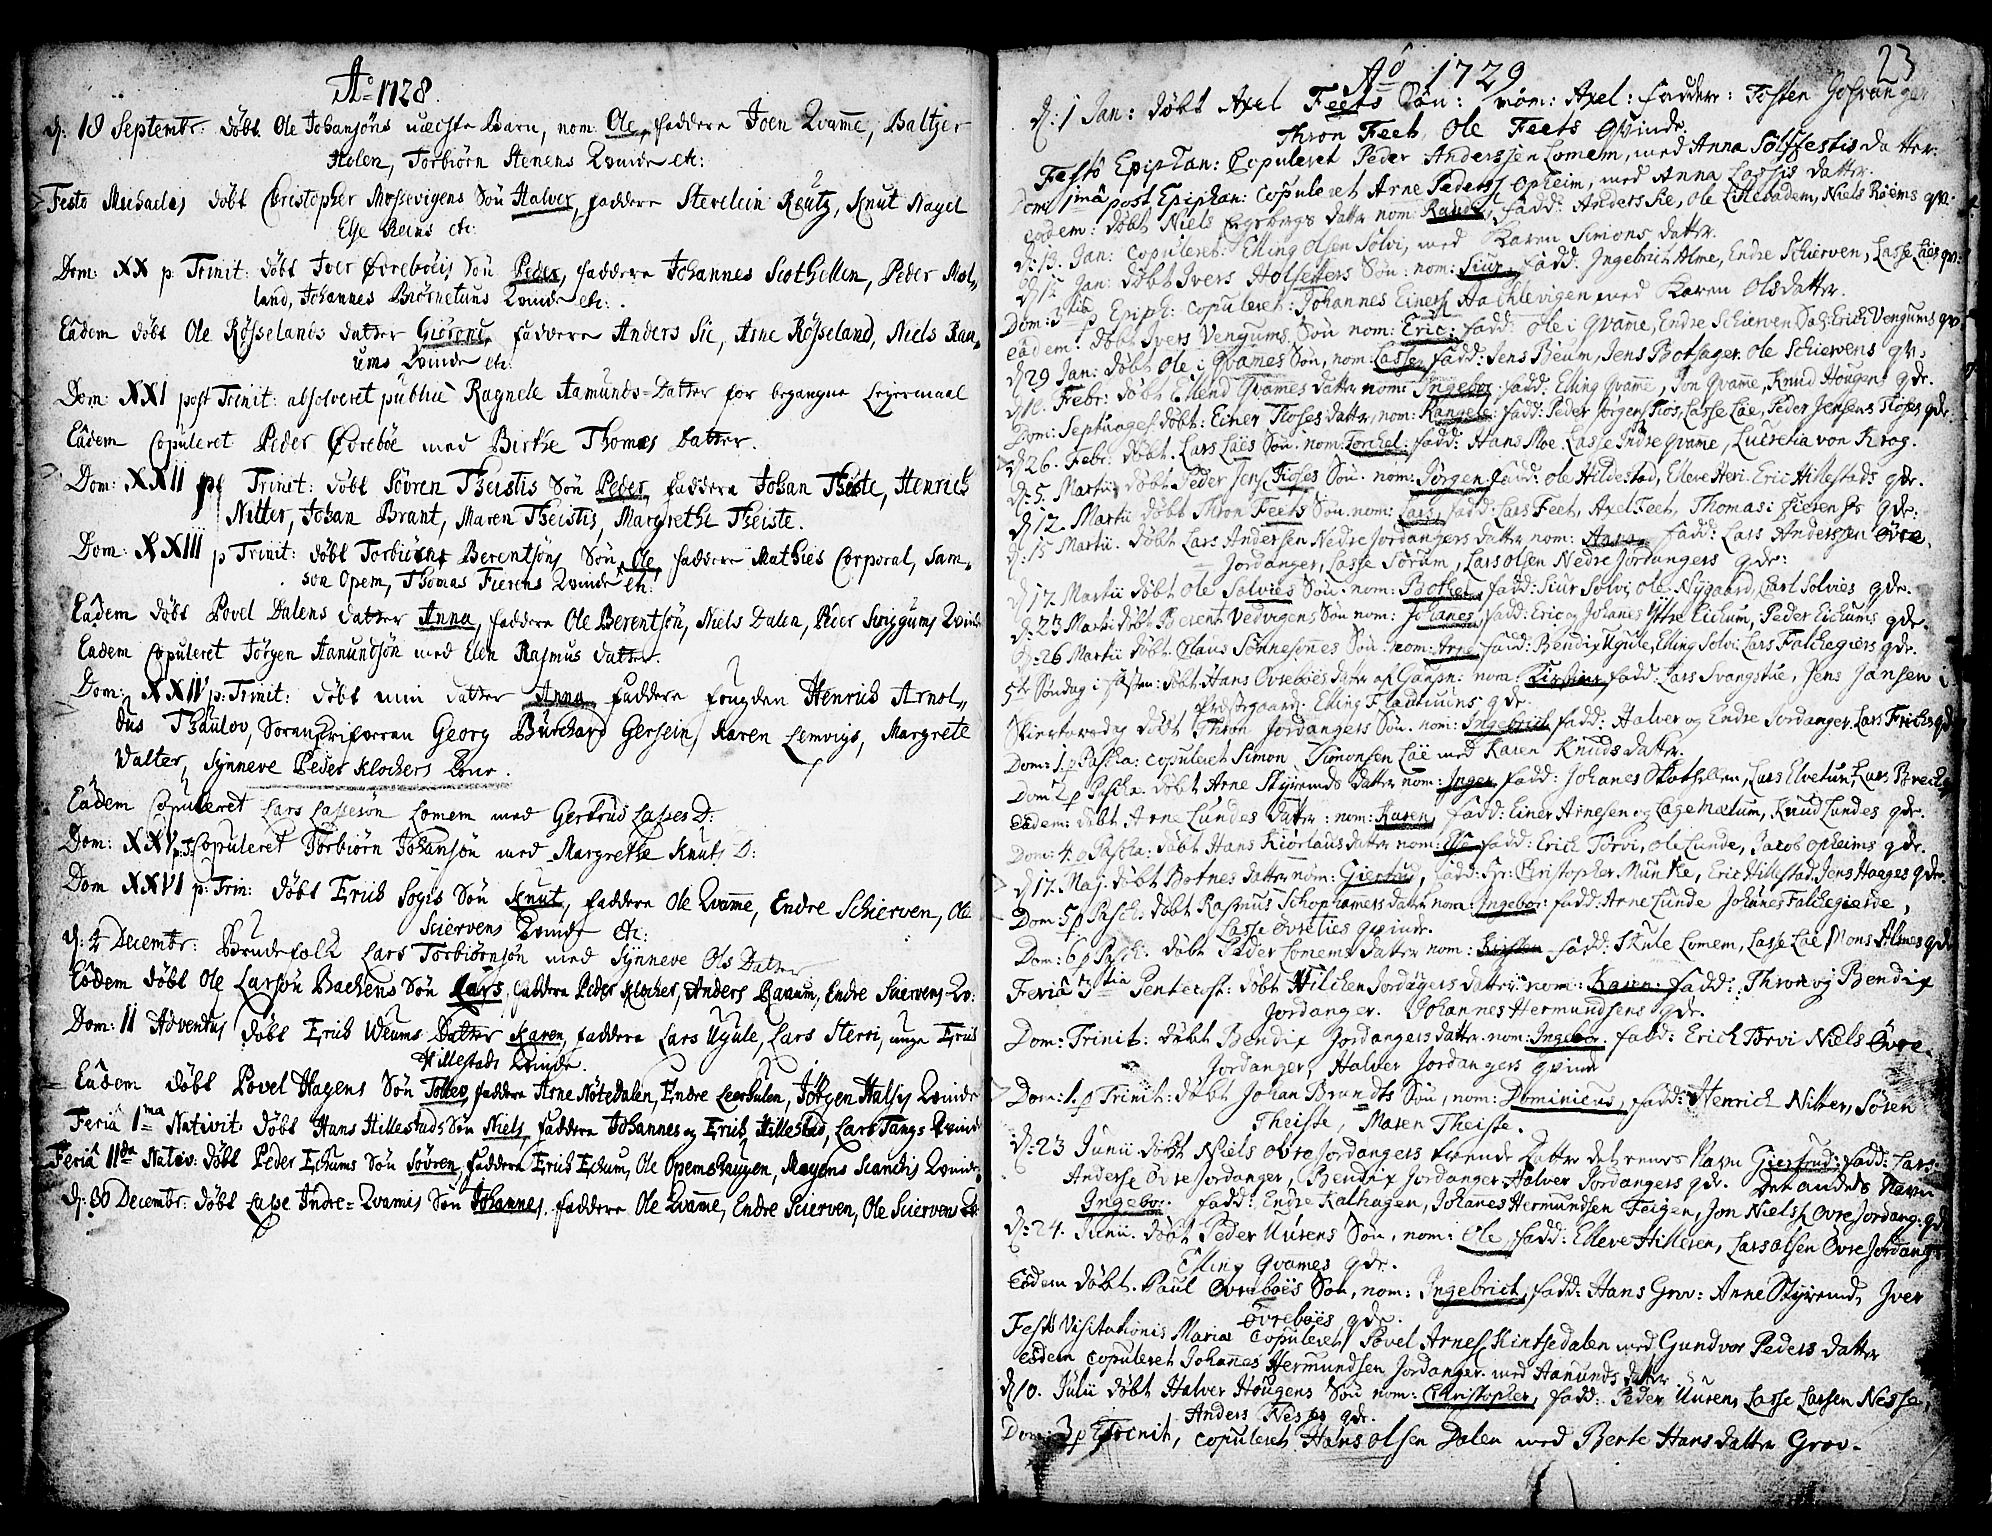 Aº 1728.
d: 18 Septembr: døbt Ole Johansøns uægte Barn, nom Ole, faddere Joen Qvame, Baltzer
Holen, Torbiørn Stenens Qvinde etc:
Festo Michaelis døbt Christopher Mossevigens Søn Halver, faddere Sterelein Reutz, Knut Nagel
Else Reins etc:
Dom: XX p. Trinit: døbt Iver Øvrebøes Søn Peder, faddere Johannes Scothellen, Peder Mæl,
land, Johannes Biørnetuns Qvinde etc:
Eâdem døbt Ole Røsselands datter Giørond, faddere Anders Sie, Arne Røsseland, Niels Ran,
ums Qvinde etc:
Dom: XXI post Trinit: absolveret publicè Ragnele Aamunds-Datter for begangne Leyermaal
Eâdem Copuleret Peder Øvrebøe med Birthe Thomes Datter.
Dom: XXII pt Trinit: døbt Søvren Theistis Søn Peder, faddere Johan Theiste, Henrich
Nitter, Johan Brant, Maren Theistis, Margrethe Theiste.
Dom: XXIII p Trinit: døbt Torbiørns Berentsøns Søn Ole, faddere Mathies Corporal, Sam,
son Opem, Thomas Fierens Qvinde etc:
Eâdem døbt Povel Dalens datter Anna, faddere Ole Berentsøn, Niels Dalen, Peder Sviggums Qvinde
Eadem Copuleret Jørgen Aanundsøn med Elen Rasmus datter.
Dom: XXIV p: Trinit: døbt min datter Anna faddere fougden Henrich Arnol,
dus Thaulov, Soranskriferen Georg Burchard Gersein, Karen Lemvigs, Margrete
Walter, Synneve Peder Klockers Kone.
Eâdem Copuleret Lars Lassesøn Lomem med Gertrud Lasses D:
Dom: XXV p:T: Copuleret Torbiørn Johansøn med Margrethe Knuts D:
Dom XXVI p: Trin: døbt Erich Sogis Søn Knut, faddere Ole Qvame, Endre Schierven, Ole
Sciervens Qvinde etc:
d: 4 Decembr: Brudefolk Lars Torbiørnsøn med Synneve Ols Datter
Eôdem døbt Ole Larsøn Bachens Søn Lars, faddere Peder Klocker, Anders Ranum, Endre Sciervens Qv:
Dom: II Adventus døbt Erich Weums Datter Karen, faddere Lars Ugule, Lars Sterri, unge Erich
Hillestads Qvinde.
Eâdem døbt Povel Hagens Søn Tollev, faddere Arne Nøtedalen, Endre Leerhulen, Jørgen Halsis Qvinde
Feriâ 1ma Nativit: døbt Hans Hillestads Søn Niels, faddere Johannes og Erich Hillestad, Lars Tangs Qvinde
Feriâ IIda Nativ: døbt Peder Echums Søn Søvren, faddere Erich Echum, Ole Opemshaugen, Mogens Scandis Qvinde
d: 30 Decembr: døbt Lasse Indre-Qvamis Søn Johannes. faddere Ole Qvame, Endre Scierven, Ole Sciervens
23
Aô 1729
d: 1 Jan: døbt Axel Feets Søn: nom: Axel: faddere: Tosten
Thron Feet, Ole Feets Qvinde
Festô Epiphan: Copuleret Peder Anderssen Lomem, med Anna Sølffestis datter.
Dom: 1mâ post Epiphan: copuleret Arne Peders Opheim, med Anna Lassis datter.
eâdem: døbt Niels datter nom: Rande, fadd: Anders Sie, Ole Røems qv:
d: 13. Jan: copuleret Elling Olsen Solvi, med Karen Simons datter.
d: 15 Jan: døbt Ivers Holseters Søn: nom: Siur, fadd: Ingebrict Alme, Endre Schierven, Lasse Lies qv:
Dom: 3tia p Epiph: copuleret: Johannes Einers Hachlevigen med Karen Olsdatter.
eâdem: døbt Ivers Vengums Søn nom: Eric: fadd: Ole i Qvame, Endre Schierven Erich Vengums qv.
d 29 Jan: døbt Ole i Qvames Søn, nom: Lasse, fadd: Jens Beum, Jens Botsager, Ole Schiervens qv.
d 10. Febr: døbt Ellend Qvames datter nom: Ingebor, fadd: Elling Qvame, Jon Qvame, Knud Hougens qde.
Dom: Septuages døbt: Einer Fioses datter, nom: Rangele: fadd: Peder Jørgens Fios, Lasse Lâe, Peder Jensens Fioses qde.
d: 26. Febr: døbt Lars Läes Søn. nom: Torchel: fadd: Hans Moe, Lasse Indre Qvame, Lucretia von Krog.
d: 5. Martii døbt Peder Jens Fioses Søn. nom: Jørgen, fadd: Ole Hildestad, Elleve Heri. Eric Hillestads qde.
d 12. Martii døbt Thron Feets Søn. nom: Lars, fadd: Lars Feet, Axel Feet, Thomas i Fierens qde.
d: 15 Martii. døbt Lars Andersen Nedre Jordangers datter nom: fadd: Lars Anderssen Øvre
Jordanger, Lasse Sørum, Lars Olsen Nedre Jordangers qde:
d 17. Martii døbt Ole Solvies Søn. nom: Bothel, fadd: Siur Solvi, Ole Nygaard, Carl Solvies qde.
d: 23 Martii døbt Berent Vedvigens Søn nom: Johanes, fadd: Eric og Johanes Yttre Eichum, Peder Eichums qde.
d: 26 Martii døbt Claus Sønnesønes Søn nom: Arne, fadd: Bendix Ugule, Elling Solvi, Lars Falchegiers qde.
5te Søndag i fasten: døbt Hans Øvrebøes datter nom: Kirstin, fadd: Lars Svangstue, Jens Jansen i
Præstegaard: Elling Flatuuns qde.
Skiertorsdag døbt Thron Jordangers Søn. nom: Ingebrich fadd: Halver og Endre Jordanger, Lars Frichs qde
Dom: 1. p Pascha: copuleret Simon Simonsen Läe med Karen Knudsdatter.
Dom 2 p Pascha. døbt Arne Skyrends datter nom: Inger fadd: Johanes Skothellem, Lars Elvetun, Lars Brech
eâdem: døbt Arne Lundes datter: nom: Karen, fadd: Einer Arnesen og Lage Mælum, Knud Lundes qde.
Dom: 4. p Pascha: døbt Hans Kiørlaus datter nom: fadd: Erich Torvi, Ole Lunde, Jacob Opheims qde.
d 17. Maj: døbt Botnes datter nom: Giertrud, fadd: Hr: Christopher Munthe, Eric Hillestad, Jens Haeges qde.
Dom: 5 p Pasch: døbt Rasmus Schophamers datter nom: Ingebor: fadd: Arne Lunde Johanes Falchegierde,
Lasse Øvreties qvinde.
Dom: 6 p Pasch: døbt Peder Lomems datter nom: Kirsten fadd: Skule Lomem, Lasse Läe Mons Almes qde
Feriâ 3tia Pentecost: døbt Hilchen Jordangers datter: nom: Karen: fadd: Thron og Bendix
Jordanger. Johannes Hermundsens qde.
Dom: Trinit: døbt Bendix Jordangers datter. nom: Ingebor. fadd: Erich Torvi Niels Øvre-
Jordanger, Halver Jordangers qvind
Dom: 1. p Trinit: døbt Johan Brandts Søn, nom: Dominicus, fadd: Henrich Nitter, Søren
Theiste, Maren Theiste.
d: 23 Junii døbt Niels Øvre Jordangers tvende Døttre det eenes Navn Giertrud: fadd: Lars
Anders Øvre Jordanger, Bendix Jordanger, Halver Jordangers qde. Det andets Navn
Ingebor: fadd: Endre Kalhagen, Johanes Hermundsen Feigen, Jon Niels Øvre Jordang: qde
d: 24. Junii. døbt Peder Uurens Søn, nom: Ole, fadd: Elleve Hilleren, Lars Olsen Øvre Jordang
Elling Qvames qde.
eôdem døbt. Paul Øvrebøes Søn, nom: Ingebrict, fadd: Hans Grov: Anne Skyrend, Iver
Øvrebøes qde.
Festô Visitationis Mariæ copuleret Povel Arnes Kintsedalen med Gundvor Peders datter
eôdem copuleret Johannes Hermundsen Jordanger med Aanunds datter
d 10. Julii døbt Halver Hougens Søn nom: Christopher, fadd: Peder Uuren, Lasse Larsen Nesse,
Anders Nesses qde.
Dom: 3 p Trinit, copuleret Hans Olsen Dalen med Berte Hansdatter Grov.